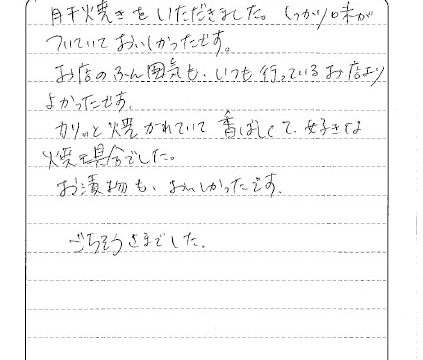 肝焼きをいただきました。しっかり味が
ついていておいしかったです。
お店のふん囲気も、いつも行っているお店より
よかったです。
カリッと焼かれていて香ばしくて、好きな
焼き具合でした。
お漬物も、おいしかったです。
ごちそうさまでした。